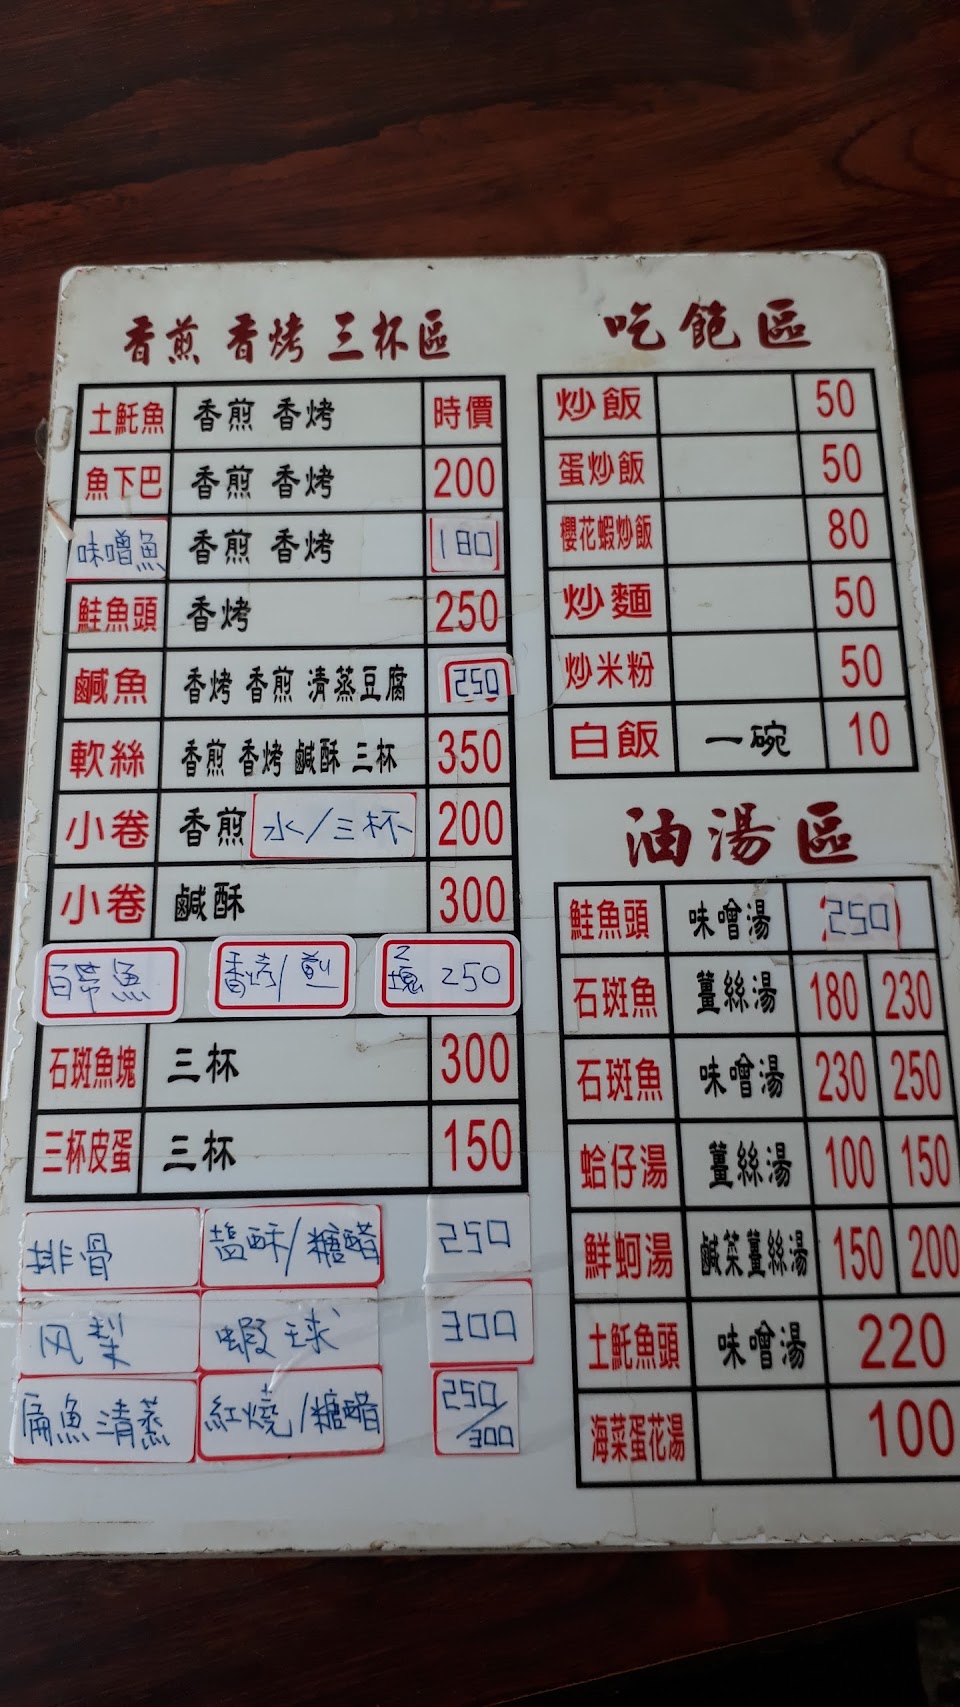 香煎 香烤 三杯區
土魠魚 香煎 香烤 時價
魚下巴 香煎 香烤 200
味噌魚 香煎 香烤 180
鮭魚頭 香烤 250
鹹魚 香烤 香煎 清蒸豆腐 250
軟絲 香煎 香烤 鹹酥 三杯 350
小卷 香煎 水/三杯 200
小卷 鹹酥 300
白帶魚 香烤/煎 2塊 250
石斑魚塊 三杯 300
三杯皮蛋 三杯 150
排骨 塩酥/糖醋 250
风梨 蝦球 300
扁魚清蒸 紅燒/糖醋 250/300
吃飽區
炒飯 50
蛋炒飯 50
櫻花蝦炒飯 80
炒麵 50
炒米粉 50
白飯 一碗 10
油湯區
鮭魚頭 味噌湯 250
石斑魚 薑絲湯 180 230
石斑魚 味噌湯 230 250
蛤仔湯 薑絲湯 100 150
鮮蚵湯 鹹菜薑絲湯 150 200
土魠魚頭 味噌湯 220
海菜蛋花湯 100